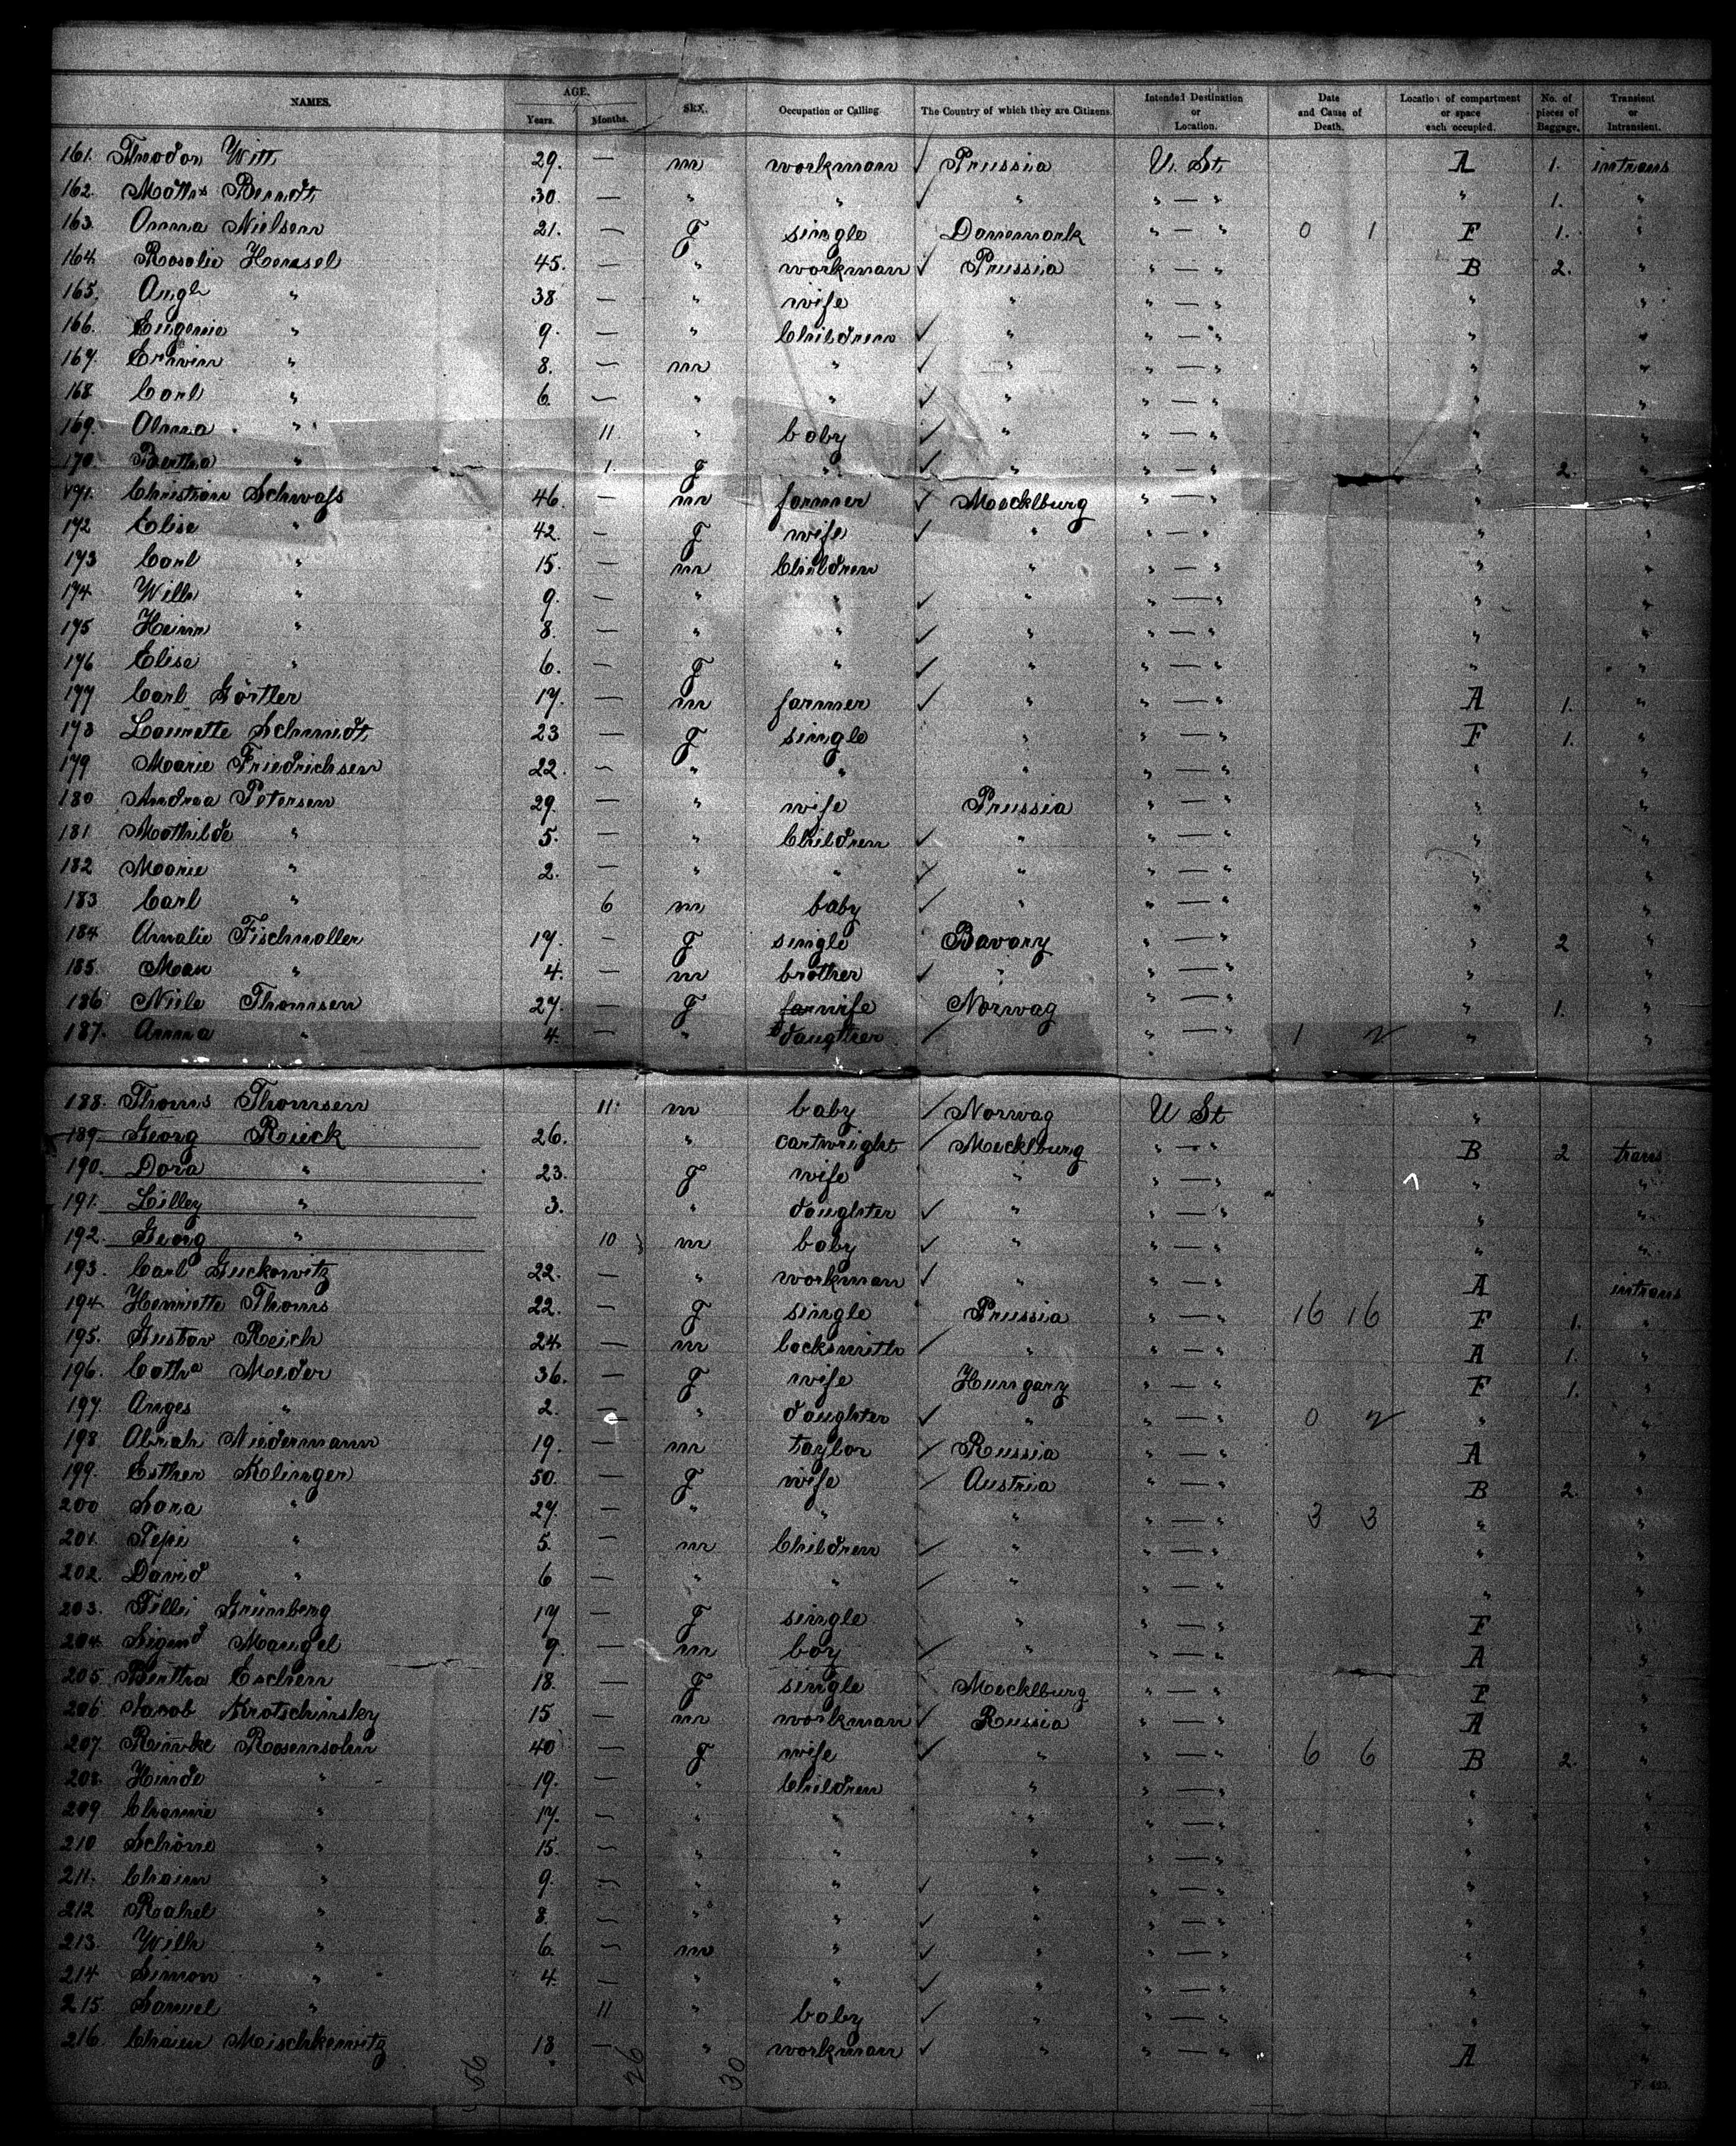 NAMES. AGE. Years. Months. SEX. Occupation or Calling The Country of which they are Citizens. Intended Destination or Location. Date and Cause of Death. Location of compartment or space each occupied. No. of pieces of Baggage. Transient or Intransient.
161. Theodor Witt 29. — m workman ✓ Prussia U. St. A 1. intrans
162. Maths Berndt 30. — " " ✓ " " — " " 1. "
163. Anna Nielsen 21. — f single Danemark " — " 0 1 F 1. "
164. Rosalie Hensel 45. — " workman ✓ Prussia " — " B 2. "
165. " 38 — " wife " " — " " "
166. Eugenie " 9. — " Children ✓ " " — " " "
167. Erwin " 8. — m " ✓ " " — " " "
168 Carl " 6. — " " ✓ " " — " " "
169. Alma " 11. " baby ✓ " " — " " "
170. Bertha " 1. f " ✓ " " — " " 2. "
171. Christian Schwaſs 46. — m farmer ✓ Mecklburg " — " " "
172 Elise " 42. — f wife ✓ " " — " " "
173 Carl " 15. — m Children " " — " " "
174 Willh " 9. — " " ✓ " " — " " "
175 Heinr " 8. — " " ✓ " " — " " "
176 Elise " 6. — f " ✓ " " — " " "
177 Carl Görtler 17. — m farmer ✓ " " — " A 1. "
178 Laurette Schmidt 23 — f single " " — " F 1. "
179 Marie Friedrichsen 22. — " " " " — " " "
180 Andrea Petersen 29. — " wife Prussia " — " " "
181. Mathilde " 5. — " Children ✓ " " — " " "
182 Marie " 2. — " " ✓ " " — " " "
183 Carl " 6 m baby ✓ " " — " " "
184 Amalie Fischmoller 17. — f single Bavary " — " " 2 "
185. Max " 4. — m brother ✓ " " — " " "
186 Niele Thomsen 27. — f wife Norwag " — " " 1. "
187. Anna " 4. — " daugther ✓ " — " 1 2 " "
188. Thoms Thomsen 11. m baby ✓ Norwag U St "
189. Georg Rieck 26. " cartwright ✓ Mecklburg " — " B 2 trans
190. Dora " 23. f wife " " — " " "
191. Lilley " 3. " daughter ✓ " " — " " "
192. Georg " 10 m baby ✓ " " — " " "
193. Carl Guckowitz 22. — " workman ✓ " " — " A intrans
194. Henriette Thoms 22. — f single Prussia " — " 16 16 F 1. "
195. Gustav Reich 24 — m locksmith ✓ " " — " A 1. "
196. Catha Meder 36. — f wife Hungary " — " F 1. "
197. Anges " 2. — " daughter ✓ " " — " 0 2 " "
198. Abrah Niedermann 19. — m taylor ✓ Russia " — " A "
199. Esther Klinger 50. — f wife ✓ Austria " — " B 2. "
200 Sara " 27. — " " " " — " 3 3 " "
201. Pepi " 5. — m Children ✓ " " — " " "
202. David " 6 — " " ✓ " " — " " "
203. Tilli Grünberg 17 — f single " " — " F "
204. Sigmd Mangel 9. — m boy ✓ " " — " A "
205. Bertha Eschen 18. — f single Mecklburg " — " F "
206 Jacob Krotschinsky 15 — m workman ✓ Russia " — " A "
207. Riwke Rosensohn 40 — f wife ✓ " " — " 6 6 B 2. "
208. Hinde " 19. — " Children " " — " " "
209 Channe " 17. — " " " " — " " "
210 Schöne " 15. — " " " " — " " "
211. Chaim " 9. — " " ✓ " " — " " "
212 Rahel " 8. — " " ✓ " " — " " "
213. Willh " 6. — m " ✓ " " — " " "
214 Simon " 4. — " " ✓ " " — " " "
215. Samuel " 11 " baby ✓ " " — " " "
216. Chaim Mischkewitz 18 — " workman ✓ " " — " A "
56 26 30